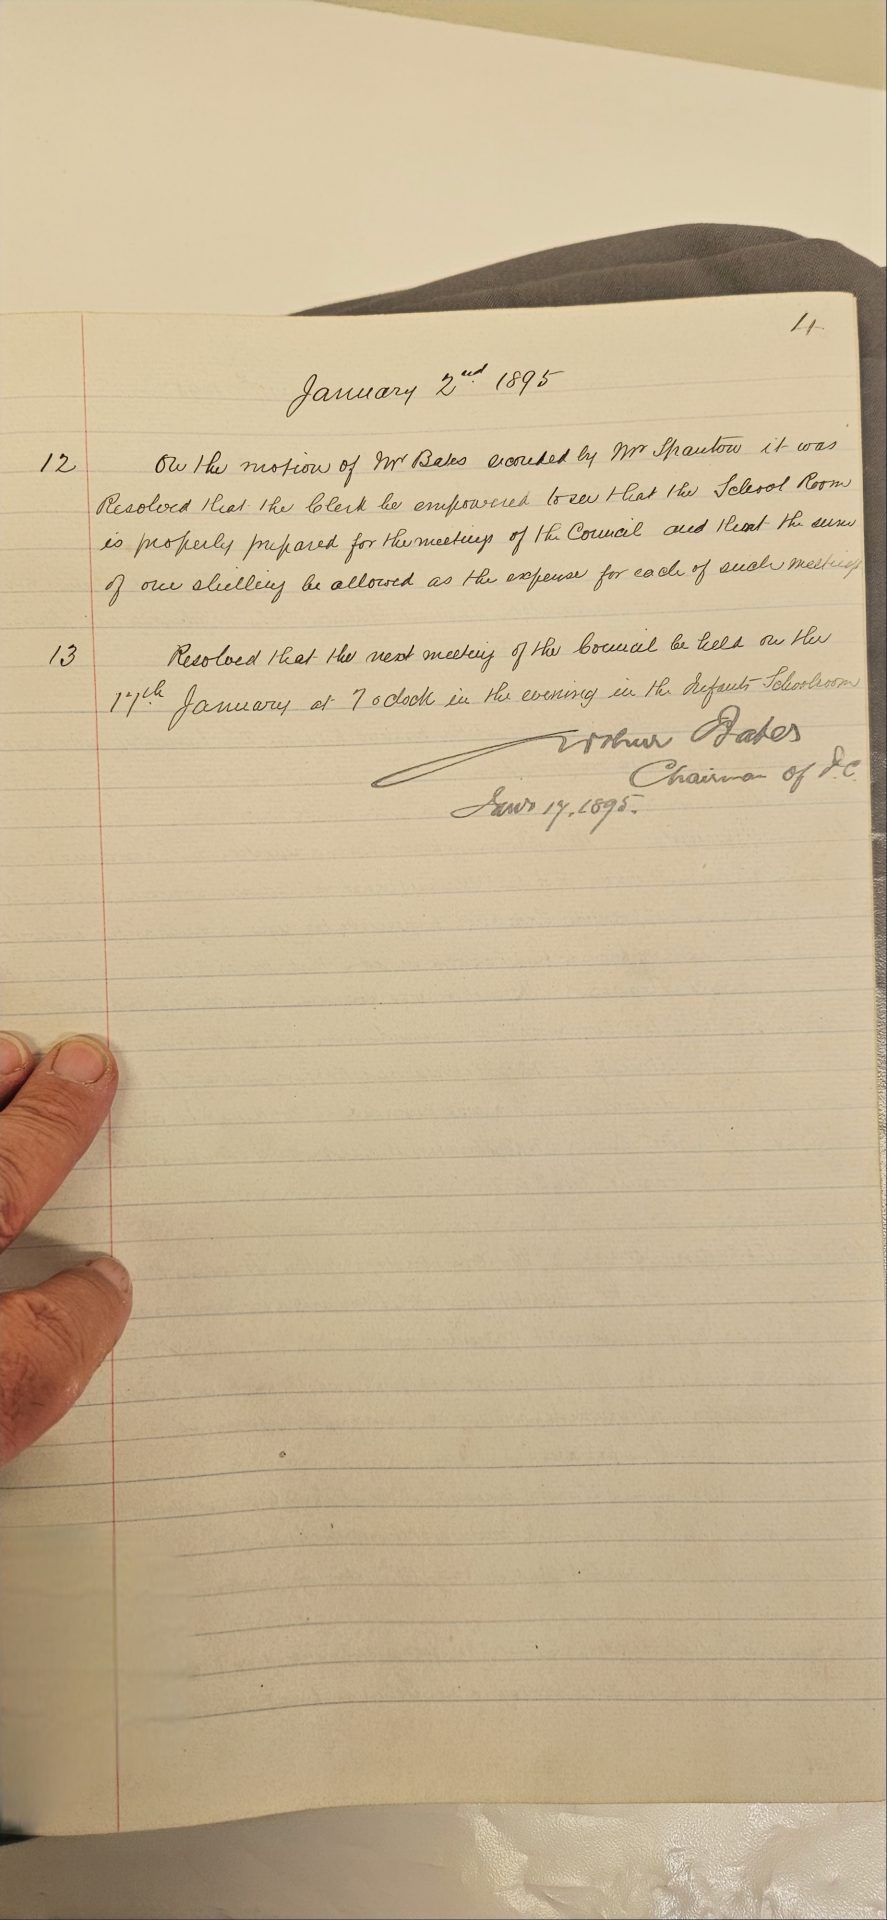 4
January 2nd 1895
12 On the motion of Mr Bates seconded by Mr Spanton it was
Resolved that the Clerk be empowered to see that the School Room
is properly prepared for the meetings of the Council and that the sum
of one shilling be allowed as the expense for each of such meetings
13 Resolved that the next meeting of the Council be held on the
17th January at 7 oclock in the evening in the Infants Schoolroom
Bates
Chairman of P.C.
17. 1895.